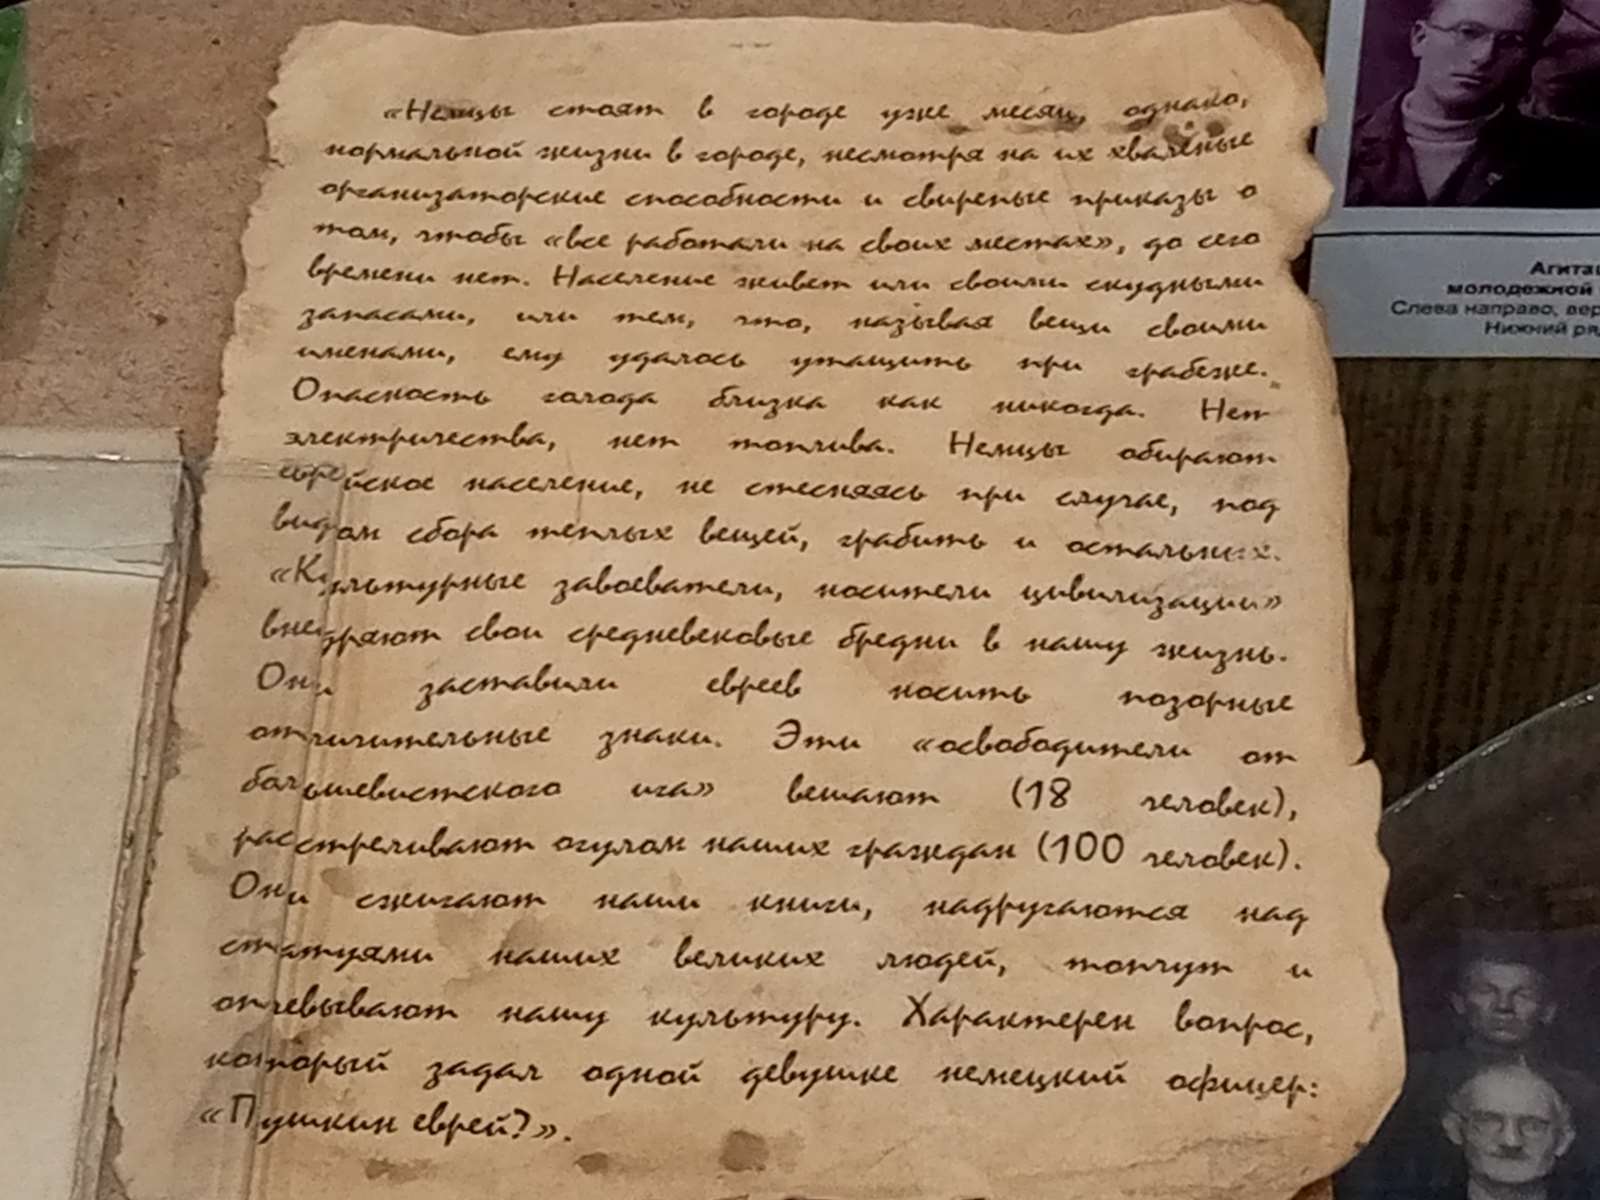 «Немцы стоят в городе уже месяц, однако,
нормальной жизни в городе, несмотря на их хвалёные
организаторские способности и свирепые приказы о
том, чтобы «все работали на своих местах», до сего
времени нет. Население живет или своими скудными
запасами, или тем, что, называя вещи своими
именами, ему удалось утащить при грабеже.
Опасность голода близка как никогда. Нет
электричества, нет топлива. Немцы обирают
еврейское население, не стесняясь при случае, под
видом сбора теплых вещей, грабить и остальных.
«Культурные завоеватели, носители цивилизации»
внедряют свои средневековые бредни в нашу жизнь.
Они заставили евреев носить позорные
отличительные знаки. Эти «освободители от
большевистского ига» вешают (18 человек),
расстреливают огулом наших граждан (100 человек).
Они сжигают наши книги, надругаются над
статуями наших великих людей, топчут и
оплевывают нашу культуру. Характерен вопрос,
который задал одной девушке немецкий офицер:
«Пушкин еврей?».
Агита
молодежной
Слева направо, вер
Нижний ря